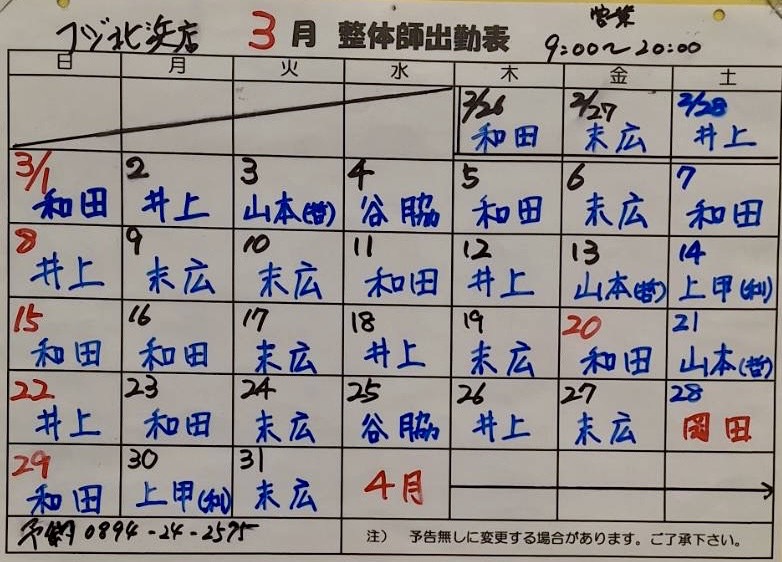 フジ北浜店 3月 整体師出勤表 営業
9:00〜20:00
日 月 火 水 木 金 土
2/26 2/27 2/28
和田 末広 井上
3/1 2 3 4 5 6 7
和田 井上 山本(哲) 谷脇 和田 末広 和田
8 9 10 11 12 13 14
井上 末広 末広 和田 井上 山本(哲) 上甲(利)
15 16 17 18 19 20 21
和田 和田 末広 井上 末広 和田 山本(哲)
22 23 24 25 26 27 28
井上 和田 末広 谷脇 井上 末広 岡田
29 30 31 4月
和田 上甲(利) 末広
予約 0894-24-2575 注) 予告無しに変更する場合があります。ご了承下さい。